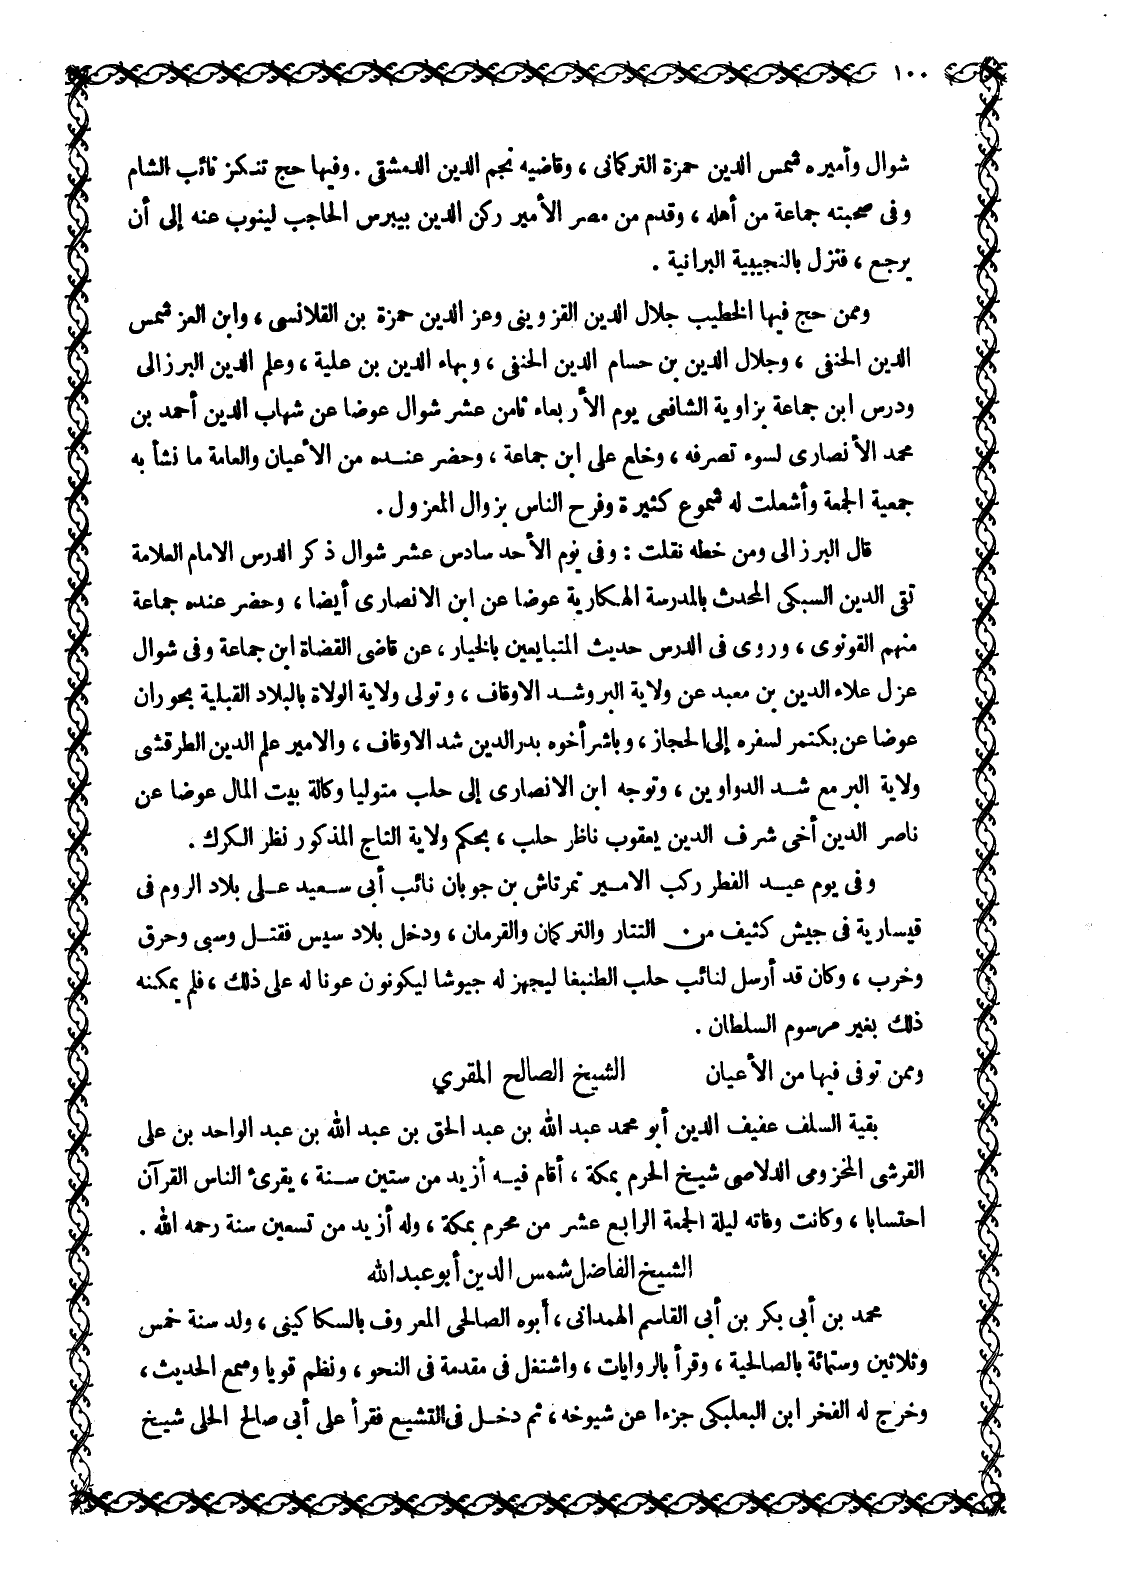 ١٠٠
شوال وأميره شمس الدين حمزة التركمانى ، وقاضيه نجم الدين الدمشقى . وفيها حج تنكز نائب الشام
وفى صحبته جماعة من أهله ، وقدم من مصر الأمير ركن الدين بيبرس الحاجب لينوب عنه إلى أن
يرجع ، فنزل بالنجيبية البرانية .
وممن حج فيها الخطيب جلال الدين القزوينى وعز الدين حمزة بن القلانسى ، وابن العز شمس
الدين الحنفى ، وجلال الدين بن حسام الدين الحنفى ، وبهاء الدين بن علية ، وعلم الدين البرزالى
ودرس ابن جماعة بزاوية الشافعى يوم الأربعاء ثامن عشر شوال عوضا عن شهاب الدين أحمد بن
محمد الأنصارى لسوء تصرفه ، وخلع على ابن جماعة ، وحضر عنده من الأعيان والعامة ما نشأ به
جمعية الجمعة وأشعلت له شموع كثيرة وفرح الناس بزوال المعزول .
قال البرزالى ومن خطه نقلت : وفى يوم الأحد سادس عشر شوال ذكر الدرس الامام العلامة
تقى الدين السبكى المحدث بالمدرسة الهكارية عوضا عن ابن الانصارى أيضا ، وحضر عنده جماعة
منهم القونوى ، وروى فى الدرس حديث المتبايعين بالخيار ، عن قاضى القضاة ابن جماعة وفى شوال
عزل علاء الدين بن معبد عن ولاية البر وشد الاوقاف ، وتولى ولاية الولاة بالبلاد القبلية بحوران
عوضا عن بكتمر لسفره إلى الحجاز ، وباشر أخوه بدر الدين شد الاوقاف ، والامير علم الدين الطرقشى
ولاية البر مع شد الدواوين ، وتوجه ابن الانصارى إلى حلب متوليا وكالة بيت المال عوضا عن
ناصر الدين أخى شرف الدين يعقوب ناظر حلب ، بحكم ولاية التاج المذكور نظر الكرك .
وفى يوم عيد الفطر ركب الامير تمرتاش بن جوبان نائب أبى سعيد على بلاد الروم فى
قيسارية فى جيش كثيف من التتار والتركمان والقرمان ، ودخل بلاد سيس فقتل وسبى وحرق
وخرب ، وكان قد أرسل لنائب حلب الطنبغا ليجهز له جيوشا ليكونون عونا له على ذلك ، فلم يمكنه
ذلك بغير مرسوم السلطان .
وممن توفى فيها من الأعيان الشيخ الصالح المقري
بقية السلف عفيف الدين أبو محمد عبد الله بن عبد الحق بن عبد الله بن عبد الواحد بن على
القرشى المخزومى الدلاصى شيخ الحرم بمكة ، أقام فيه أزيد من ستين سنة ، يقرئ الناس القرآن
احتسابا ، وكانت وفاته ليلة الجمعة الرابع عشر من محرم بمكة ، وله أزيد من تسعين سنة رحمه الله .
الشيخ الفاضل شمس الدين أبو عبد الله
محمد بن أبى بكر بن أبى القاسم الهمدانى ، أبوه الصالحى المعروف بالسكاكينى ، ولد سنة خمس
وثلاثين وستمائة بالصالحية ، وقرأ بالروايات ، واشتغل فى مقدمة فى النحو ، ونظم قويا وسمع الحديث ،
وخرج له الفخر ابن البعلبكى جزءا عن شيوخه ، ثم دخل فى التشيع فقرأ على أبى صالح الحلى شيخ